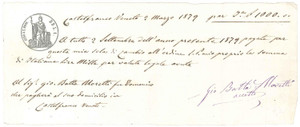 Castelfranco Veneto 2 Marzo 1879 per It. £ 1000.=
Al tutto 2 Settembre dell'anno presente 1879 pagate per
questa mia sola di cambio all'ordine S. P. mio proprio la somma
di Italiane Lire Mille per valuta
Al Sig. Gio. Batta Moretti fu Domenico
che pagherà al suo domicilio in
Castelfranco Veneto
Gio Batta Moretti